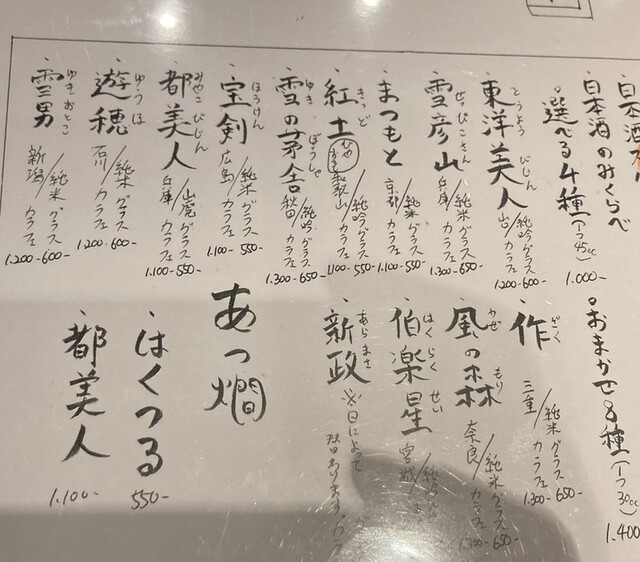 日本酒
日本酒のみくらべ
・選べる4種(1つ45cc)
1.000-
・おまかせ8種(1つ30cc)
1.400
・東洋美人
とうようびじん
山口/純吟 グラス 600-
カラフェ 1.200-
・雪彦山
せっぴこさん
兵庫/純米 グラス 650-
カラフェ 1.300-
・まつもと
京都/純米 グラス 550-
カラフェ 1.100-
・紅土
きっど
ひやおろし
和歌山/純吟 グラス 550-
カラフェ 1.100-
・雪の茅舎
ゆきのぼうしゃ
秋田/純吟 グラス 650-
カラフェ 1.300-
・宝剣
ほうけん
広島/純米 グラス 550-
カラフェ 1.100-
・都美人
みやこびじん
兵庫/山廃 グラス 550-
カラフェ 1.100-
・遊穂
ゆうほ
石川/純米 グラス 600-
カラフェ 1.200-
・雪男
ゆきおとこ
新潟/純米 グラス 600-
カラフェ 1.200-
・作
ざく
三重/純米 グラス 650-
カラフェ 1.300-
・風の森
かぜ もり
奈良/純米 グラス 650-
カラフェ 1.300-
・伯楽星
はくらくせい
宮城/純吟
・新政
あらまさ
※日によって
あります。
あつ燗
・はくつる
550-
・都美人
1.100-